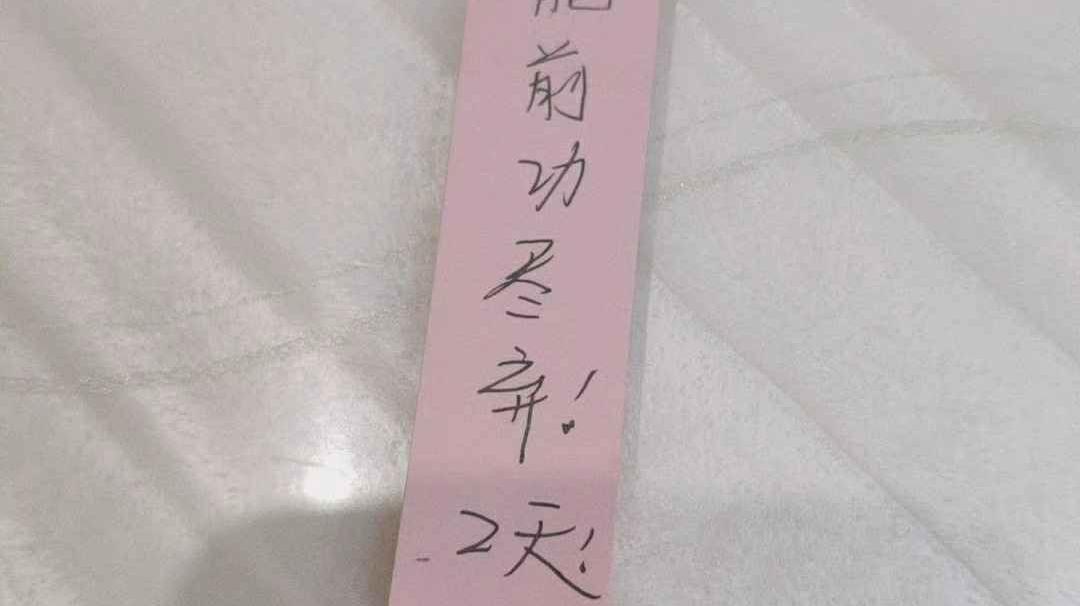 能前功尽弃!
2天!